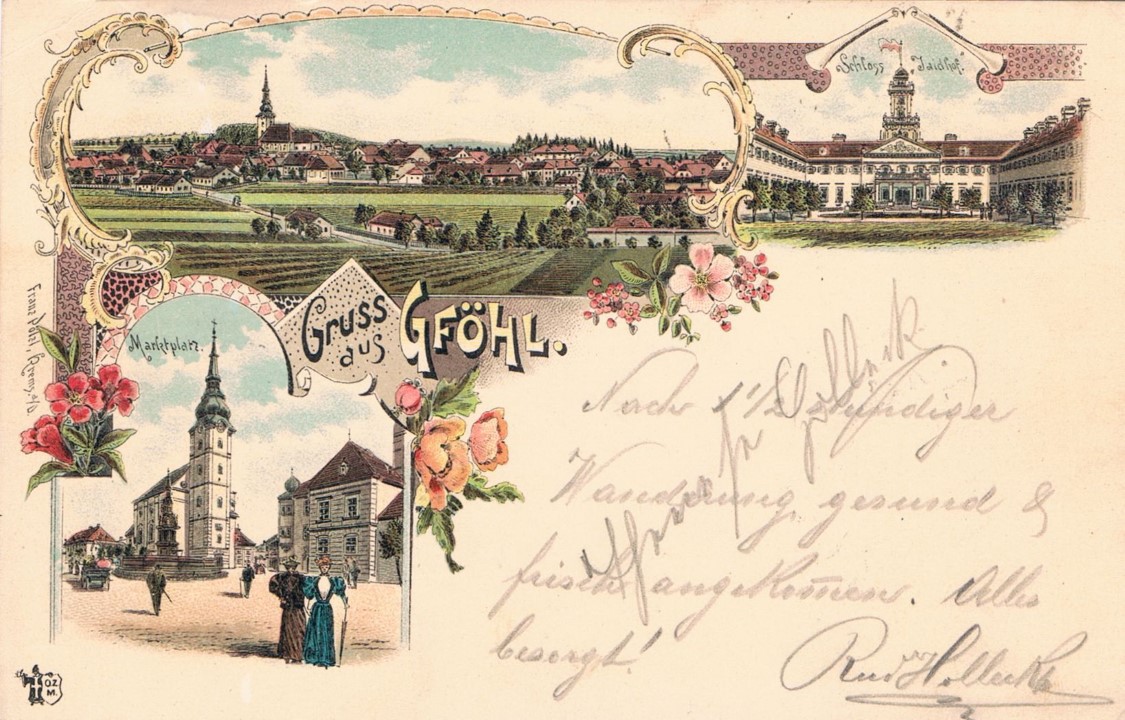 Schloss Jaidhof.
Gruss
aus
GFÖHL.
Marktplatz.
Franz Pöhl, Krems a/D.
Nach 1 1/2 stündiger
Wanderung gesund &
frisch angekommen. Alles
besorgt!
Rud
ÖZ
M.